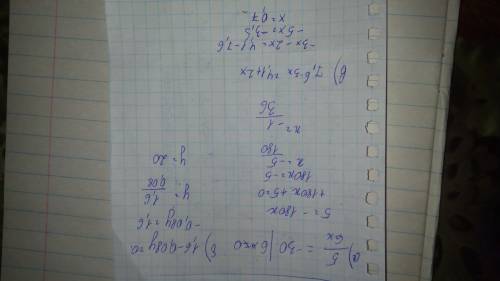 а) 5/6x = -30 | 6x≠0
5 = -180x
+180x+5=0
180x=-5
x=-5/180
x=-1/36
б) 1,6-0,08y=0
-0,08y=-1,6
y=1,6/0,08
y=20
в) 7,6-3x=4,1+2x
-3x-2x=4,1-7,6
-5x=-3,5
x=0,7